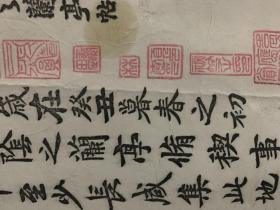 蘭亭帖
歲在癸丑暮春之初
陰之蘭亭脩稧事
至少長咸集此地